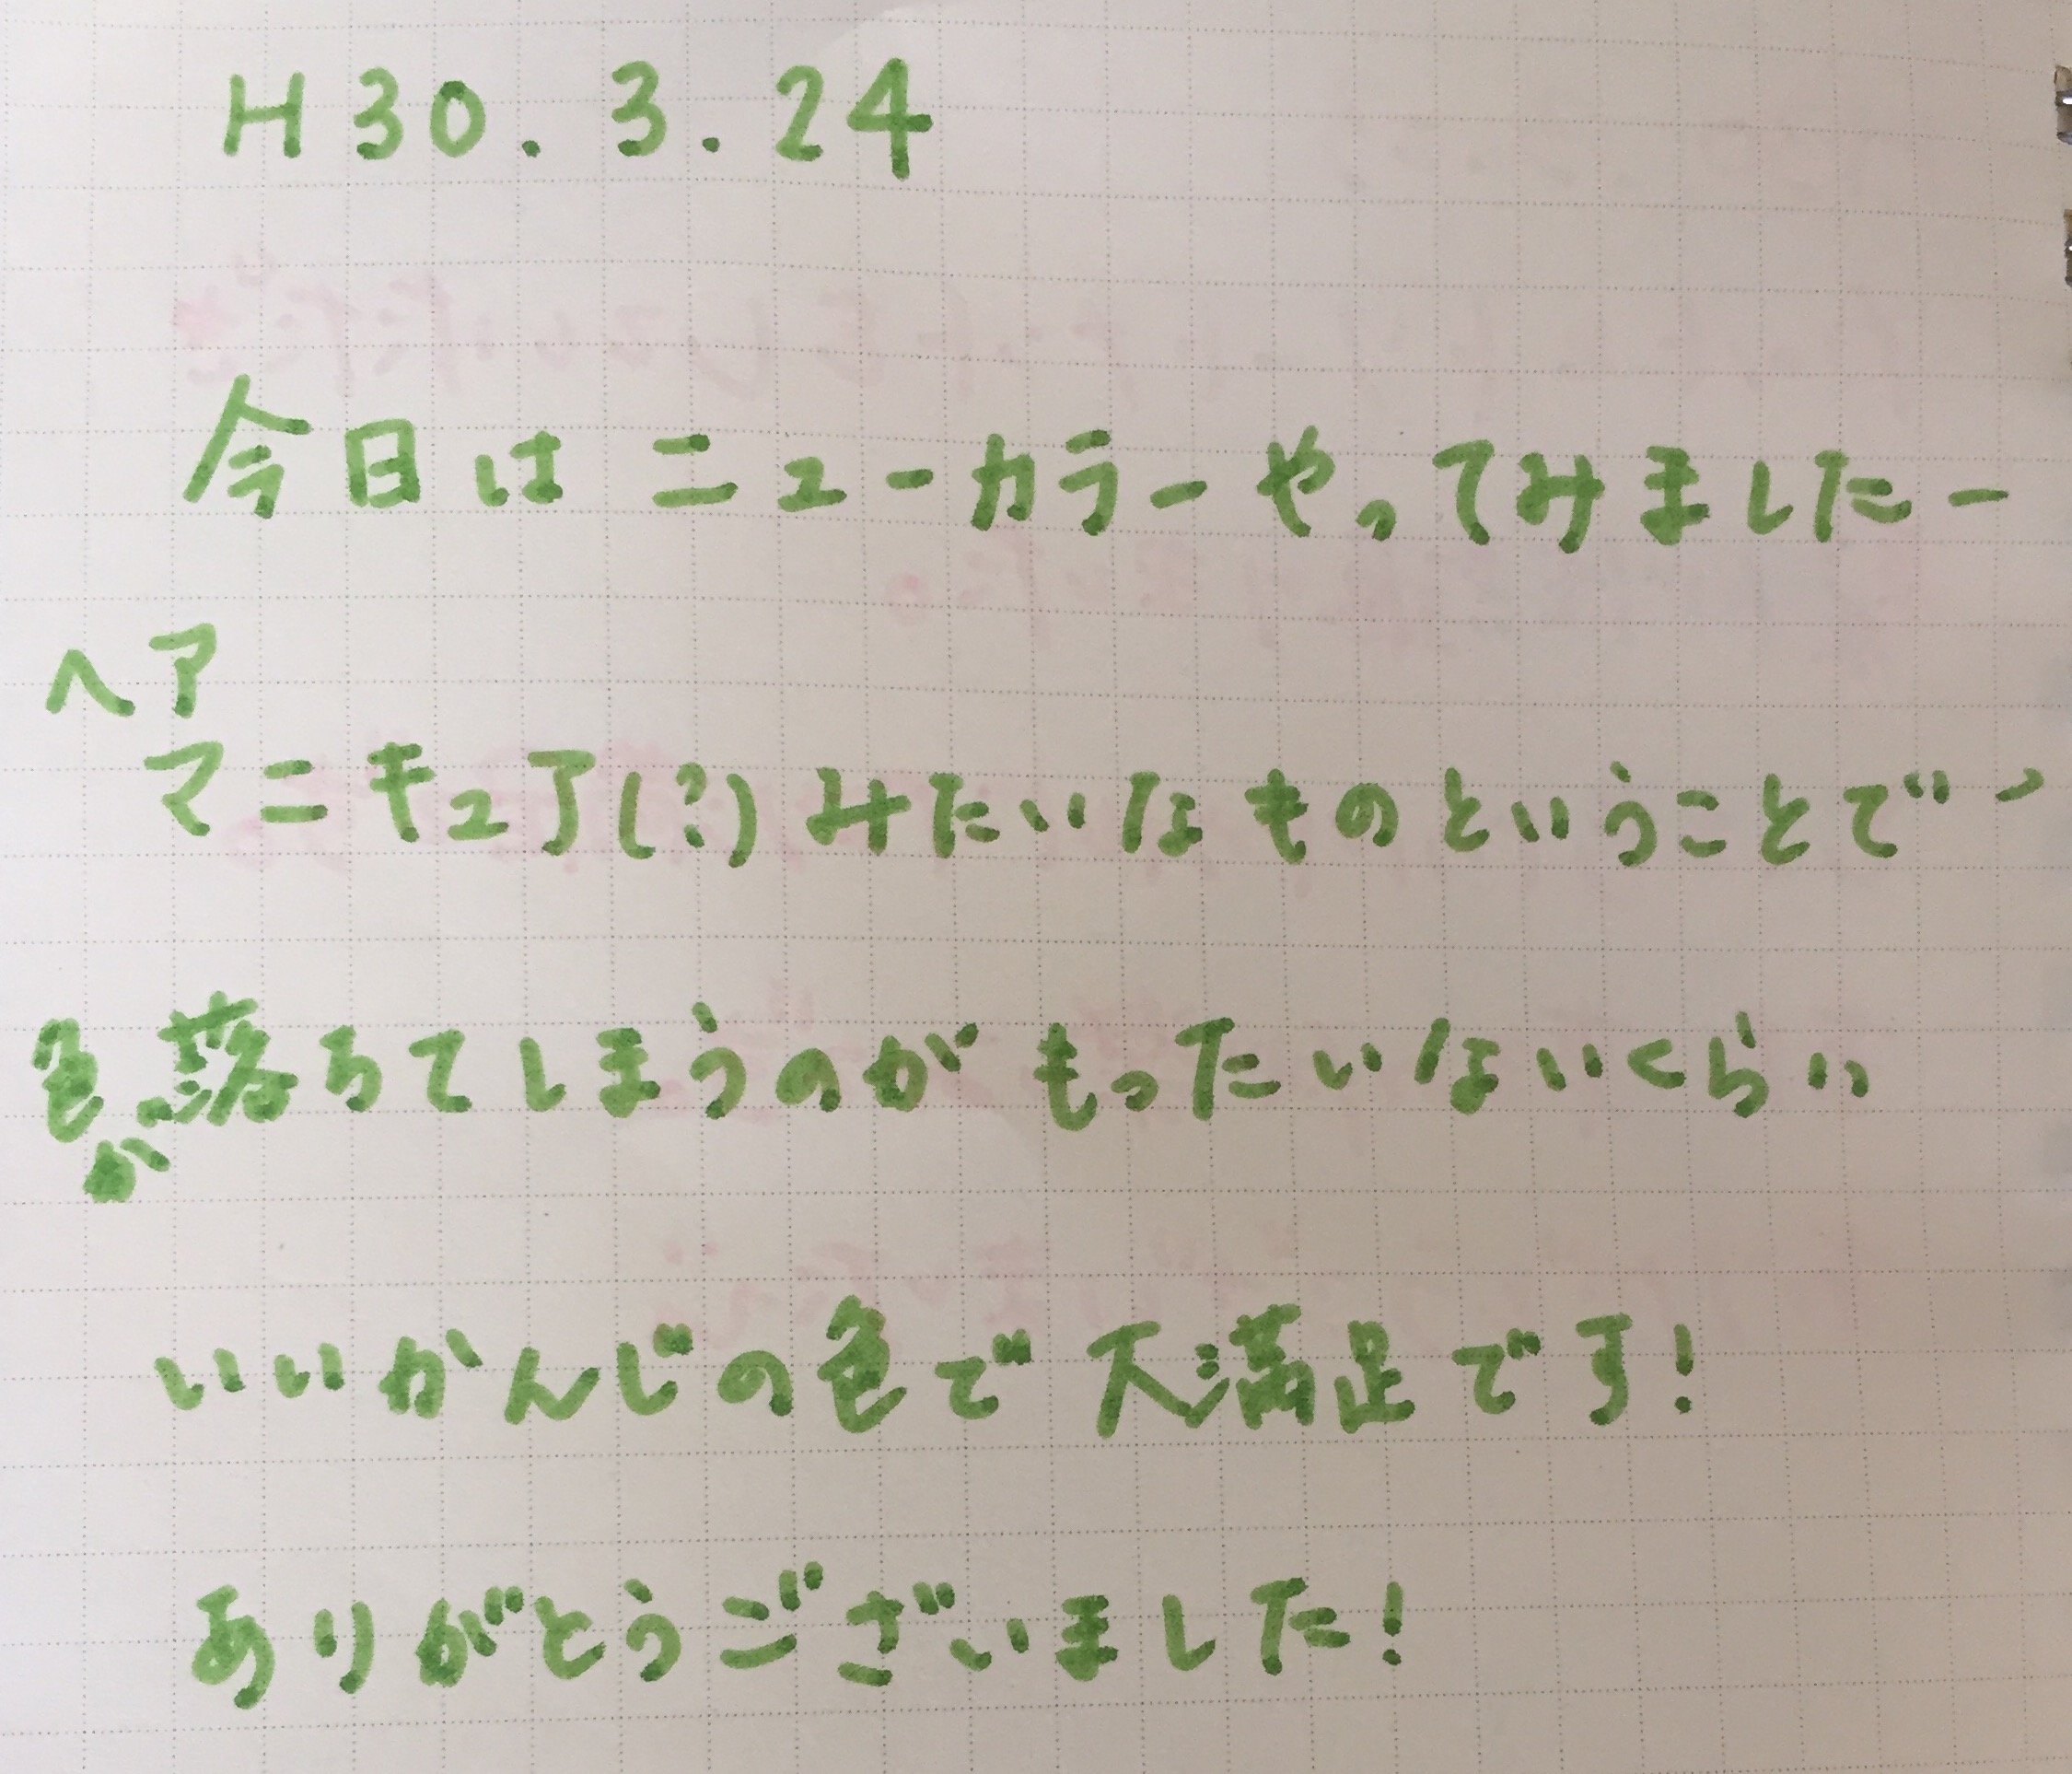 H30.3.24
今日はニューカラーやってみましたー
ヘア
マニキュア(?)みたいなものということで、
色が落ちてしまうのがもったいないくらい
いいかんじの色で大満足です!
ありがとうございました!